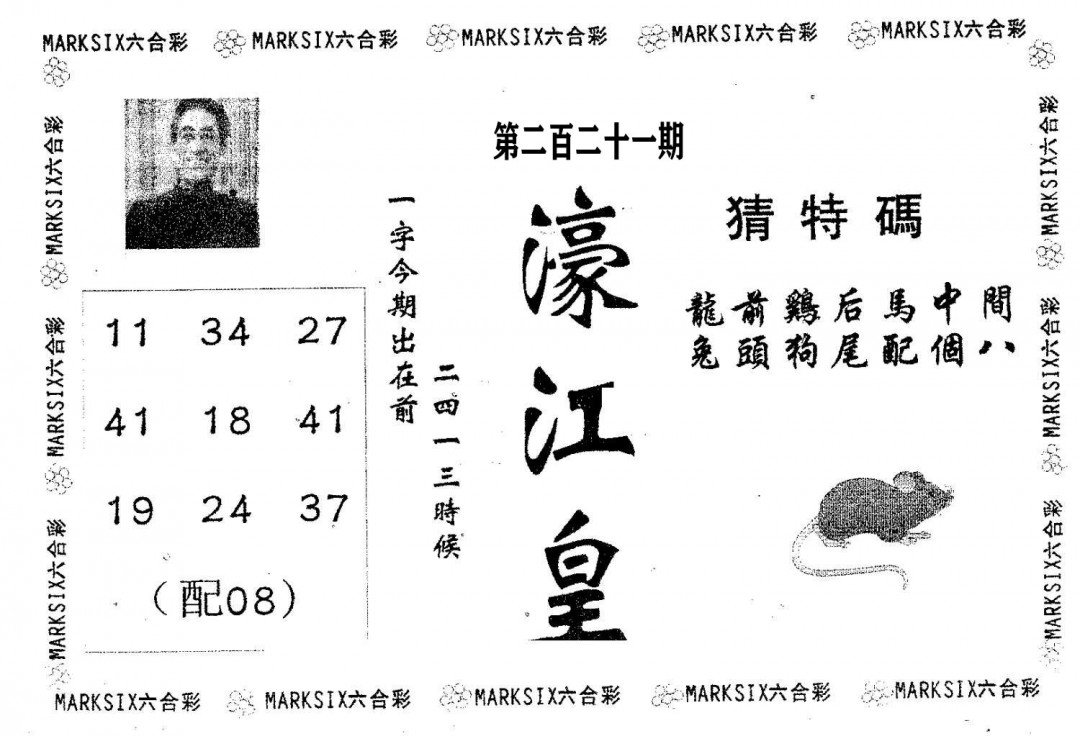 MARKSIX六合彩 MARKSIX六合彩 MARKSIX六合彩 MARKSIX六合彩 MARKSIX六合彩
MARKSIX六合彩
MARKSIX六合彩
MARKSIX六合彩
第二百二十一期
濠江皇
猜特碼
龍前鷄后馬中間
兔頭狗尾配個八
一字今期出在前
二四一三時候
11 34 27
41 18 41
19 24 37
(配08)
MARKSIX六合彩
MARKSIX六合彩
MARKSIX六合彩
MARKSIX六合彩 MARKSIX六合彩 MARKSIX六合彩 MARKSIX六合彩 MARKSIX六合彩